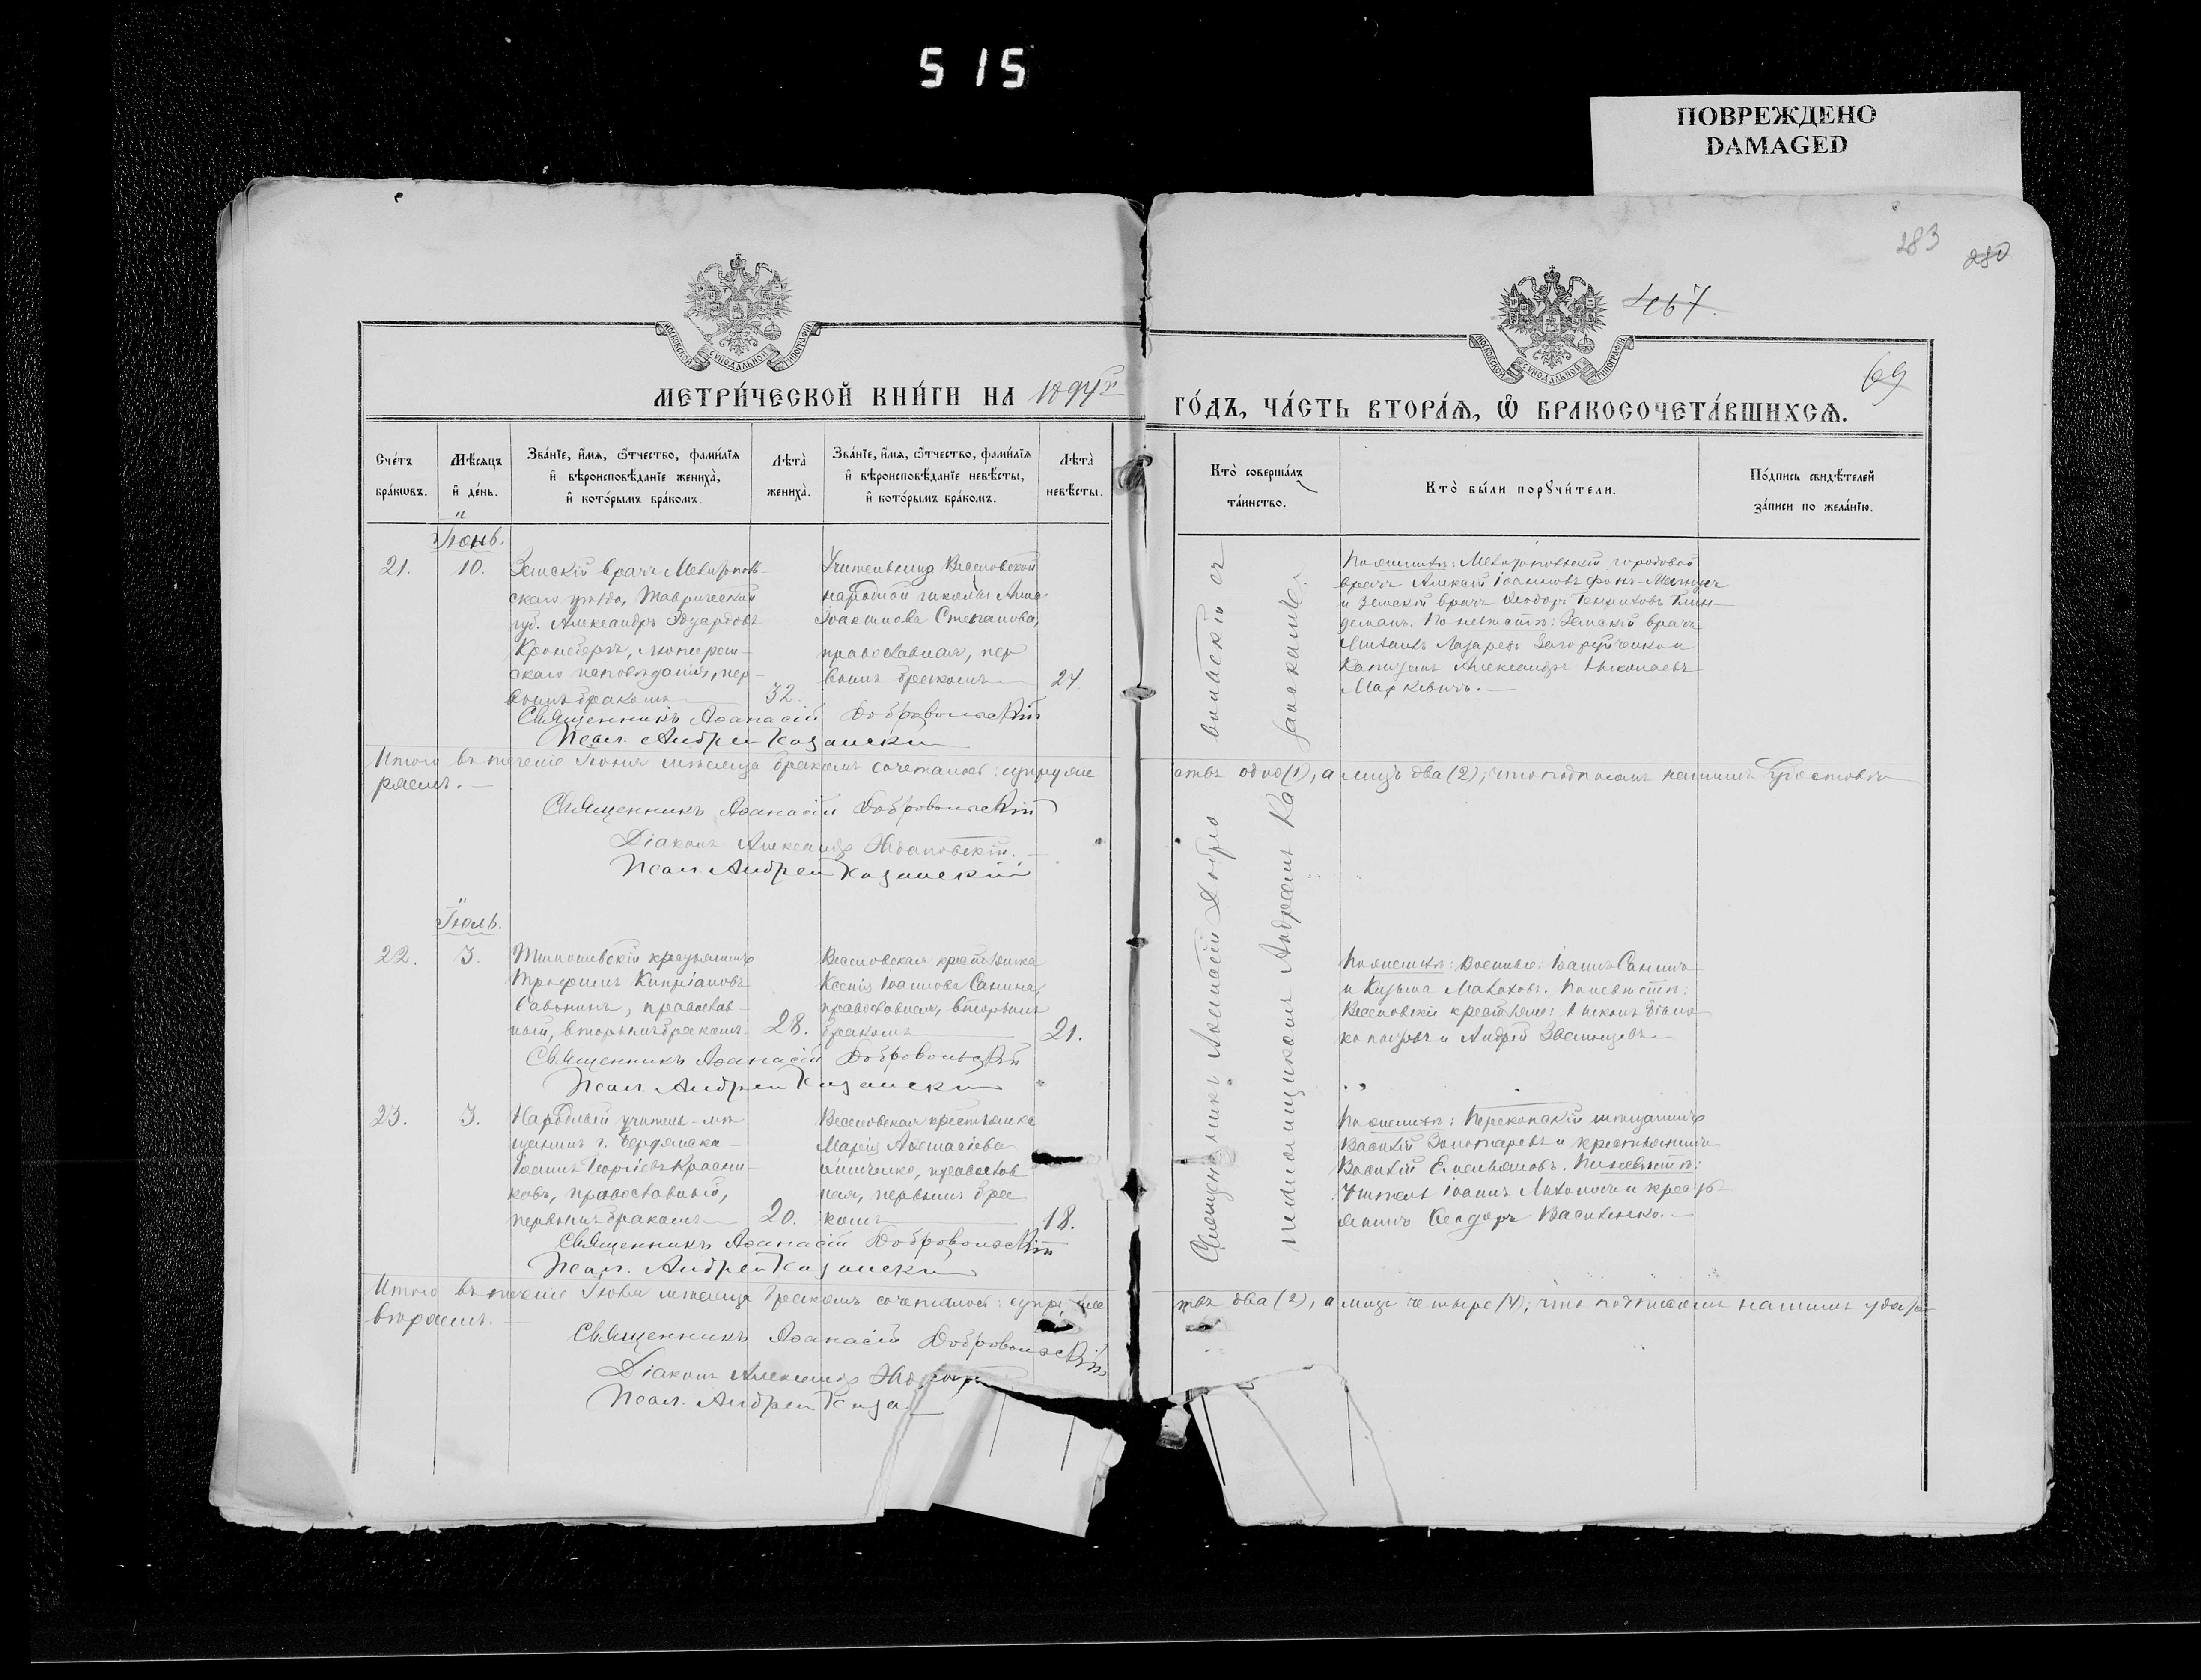 5 15
ПОВРЕЖДЕНО
DAMAGED
283
280
467.
69
МОСКОВСКОЙ СѴНОДАЛЬНОЙ ТИПОГРАФІИ
МОСКОВСКОЙ СѴНОДАЛЬНОЙ ТИПОГРАФІИ
МЕТРИ́ЧЕСКОЙ КНИ́ГИ НА 1894й
ГО́ДЪ, ЧА́СТЬ ВТОРА́Ѧ, Ѽ БРАКОСОЧЕТА́ВШИХСѦ.
Сче́тъ
бра́кѡвъ.
Мѣ́сѧцъ
и҆ де́нь.
Зва́нїе, и҆́мѧ, ѻ҆́тчество, фами́лїѧ
и҆ вѣроисповѣ́данїе жениха̀,
и҆ кото́рымъ бра́комъ.
Лѣ́та
жениха̀.
Зва́нїе, и҆́мѧ, ѻ҆́тчество, фами́лїѧ
и҆ вѣроисповѣ́данїе невѣ́сты,
и҆ кото́рымъ бра́комъ.
Лѣ́та
невѣ́сты.
Кто̀ соверша́лъ
та́инство.
Кто̀ бы́ли порꙋчи́тели.
По́дпись свидѣ́телей
за́писи по жела́нїю.
Іюнь.
21.
10.
Земскій врачъ Мелитополь-
скаго уѣзда, Таврической
губ. Александръ Эдуардовъ
Кронебергъ, лютеран-
скаго исповѣданія, пер-
вымъ бракомъ
32.
Учительница Веселовской
народной школы Анна
Іоакимова Степанова,
православная, пер
вымъ бракомъ
24
По женихѣ: Мелитопольскій городовой
врачъ Алексѣй Іоанновъ фонъ-
и Земскій врачъ Ѳеодоръ Генриховъ
По невѣстѣ: Земскій врачъ
Михаилъ Лазаревъ и
Александръ Николаевъ
Маркевичъ.
Священникъ Аѳанасій Добровольскій
Псал. Андрей Казанскій
Итого въ теченіе Іюня мѣсяца бракомъ сочеталось: супруже
ствъ одно (1), а лицъ два (2); что подписомъ нашимъ удостовѣ
ряемъ.
Священникъ Аѳанасій Добровольскій
Діаконъ Александръ Ждановскій.
Псал. Андрей Казанскій
Іюль.
22.
3.
Тимошевскій крестьянинъ
Трофимъ Кипріановъ
Савонинъ, православ-
ный, вторымъ бракомъ.
28.
Веселовская крестьянка
Ксенія Іоаннова Санина,
православная, вторымъ
бракомъ
21.
По женихѣ: Іоаннъ Санинъ
и Кузьма Малаховъ. По невѣстѣ:
Веселовскіе крестьяне:
и Андрей Звягинцевъ
Священникъ Аѳанасій Добровольскій
Псал. Андрей Казанскій
23.
3.
Народный учитель-мѣ
щанинъ г. Бердянска
Іоаннъ Георгіевъ Красни-
ковъ, православный,
первымъ бракомъ
20.
Веселовская крестьянка
Марія Аѳанасіева
православ
ная, первымъ бра
комъ
18.
По женихѣ: Перекопскій мѣщанинъ
Василій Золотаревъ и крестьянинъ
Василій Емельяновъ. По невѣстѣ:
Учитель Іоаннъ и кресть
янинъ Ѳеодоръ Василенко.
Священникъ Аѳанасій Добровольскій
Псал. Андрей Казанскій
Священникъ Аѳанасій Добро вольскій съ
псаломщикомъ Андреемъ Ка занскимъ.
Итого въ теченіе Іюля мѣсяца бракомъ сочеталось: супруже
ствъ два (2), а лицъ четыре (4); что подписомъ нашимъ удо
вѣряемъ.
Священникъ Аѳанасій Добровольскій
Діаконъ Александръ
Псал. Андрей Каза